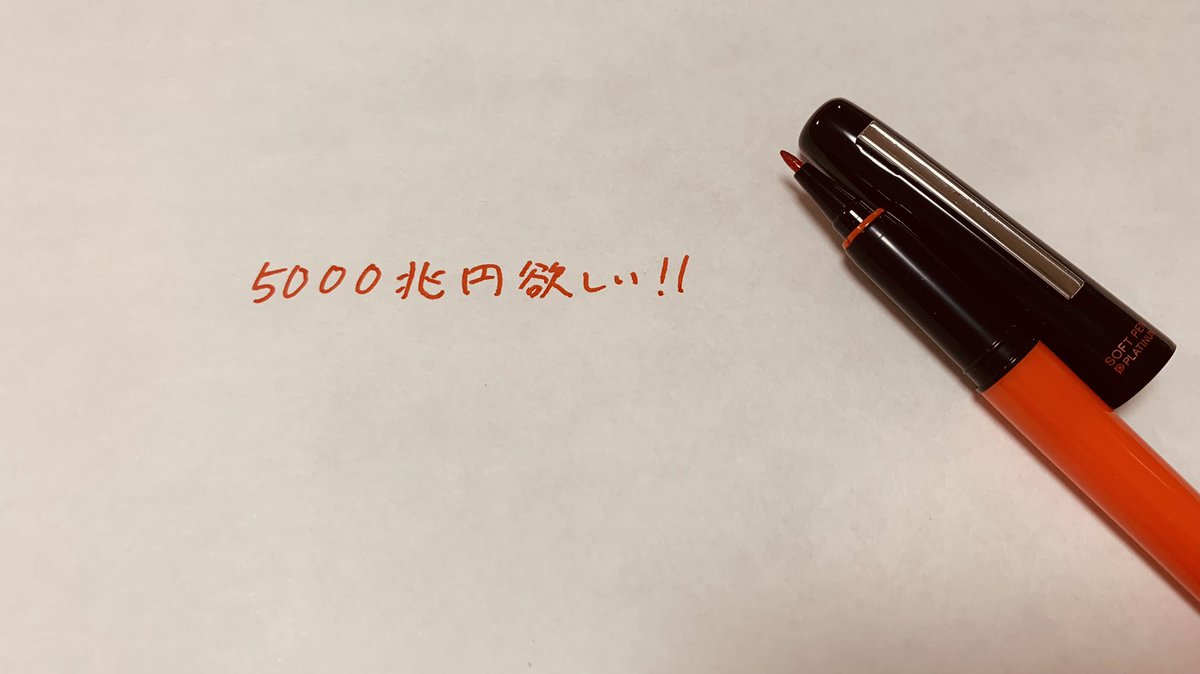 5000兆円欲しい!!
SOFT PEN
PLATINUM